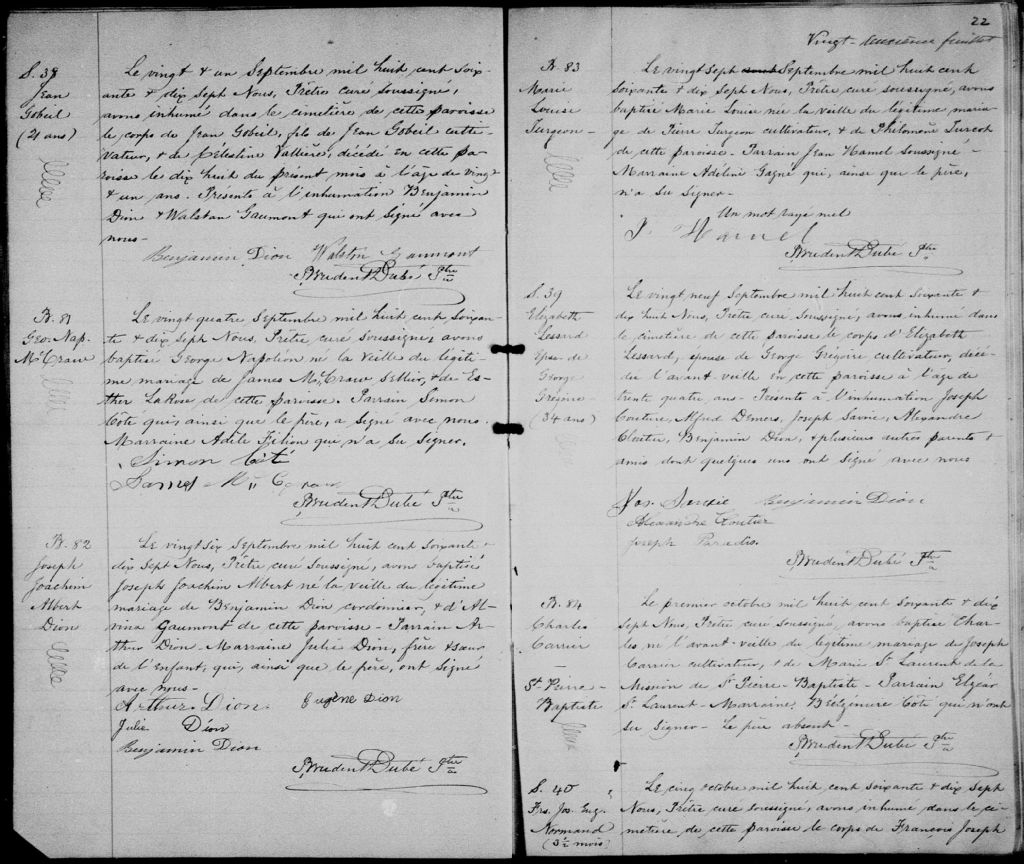 S. 38
Jean
Gobeil
(21 ans)
Le vingt & un Septembre mil huit cent Soix-
ante & dix Sept Nous, Prêtre curé Soussigné,
avons inhumé dans le cimetière de cette paroisse
le corps de Jean Gobeil, fils de Jean Gobeil culti-
vateur, & de Célestine Vallière, décédé en cette pa-
roisse le dix huit du présent mois à l'âge de vingt
& un ans. Présents à l'inhumation Benjamin
Dion & Walstan Gaumont qui ont Signé avec
nous-
Benjamin Dion Walstin Gaumont
Prudent Dubé Ptre
B. 81
Geo. Nap.
Mc Craw
Le vingt quatre Septembre mil huit cent Soixan-
te & dix Sept Nous, Prêtre curé Soussigné, avons
baptisé George Napoléon né la veille du légiti-
me mariage de James McCraw Sellier, & de Es-
ther LaRose de cette paroisse. Parrain Simon
Côté qui, ainsi que le père, a Signé avec nous.
Marraine Adèle Filion qui n'a su Signer.
Simon Côté
James Mc
Prudent Dubé Ptre
B. 82
Joseph
Joachim
Albert
Dion
Le vingt Six Septembre mil huit cent Soixante &
dix Sept Nous, Prêtre curé Soussigné, avons baptisé
Joseph Joachim Albert né la veille du légitime
mariage de Benjamin Dion cordonnier, & d'Al-
vina Gaumont de cette paroisse - Parrain Ar-
thur Dion. Marraine Julie Dion, frère & sœur
de l'Enfant, qui, ainsi que le père, ont Signé
avec nous-
Arthur Dion. Eugène Dion
Julie Dion
Benjamin Dion
Prudent Dubé Ptre
22
Vingt-deuxième feuillet
B. 83
Marie
Louise
Turgeon-
Le vingt Sept Septembre mil huit cent
Soixante & dix Sept Nous, Prêtre curé Soussigné, avons
baptisé Marie Louise née la veille du légitime maria-
ge de Pierre Turgeon cultivateur, & de Philomène Turcot
de cette paroisse - Parrain Jean Hamel Soussigné -
Marraine Adeline Gagné qui, ainsi que le père,
n'a Su Signer-
Un mot rayé nul
J. Hamel
Prudent Dubé Ptre
S. 39
Elizabeth
Lessard
Epse de
George
Grégoire
(34 ans)
Le vingt neuf Septembre mil huit cent Soixante &
dix huit Nous, Prêtre curé Soussigné, avons inhumé dans
le cimetière de cette paroisse le corps d'Elizabeth
Lessard, épouse de George Grégoire cultivateur, décé-
dée l'avant-veille en cette paroisse à l'âge de
trente quatre ans - Présents à l'inhumation Joseph
Coutier, Alfred Demers, Joseph Savoie, Alexandre
Cloutier, Benjamin Dion, & plusieurs autres parents &
amis dont quelques uns ont Signé avec nous
Jos. Savoie Benjamin Dion
Alexandre Cloutier
Joseph Paradis.
Prudent Dubé Ptre
B. 84
Charles
Carrier
-
St Pierre-
Baptiste
Le premier octobre mil huit cent Soixante & dix
Sept Nous, Prêtre curé Soussigné, avons baptisé Char-
les, né l'avant-veille du légitime mariage de Joseph
Carrier cultivateur, & de Marie St Laurent de la
Mission de St Pierre-Baptiste - Parrain Elzéar
St Laurent - Marraine, Belzémire Côté qui n'ont
su Signer - Le père absent-
Prudent Dubé Ptre
S. 40
Frs. Jos. Eug.
Normand
(3½ mois)
Le cinq octobre mil huit cent soixante & dix Sept
Nous, Prêtre curé Soussigné, avons inhumé dans le ci-
metière de cette paroisse le corps de François Joseph